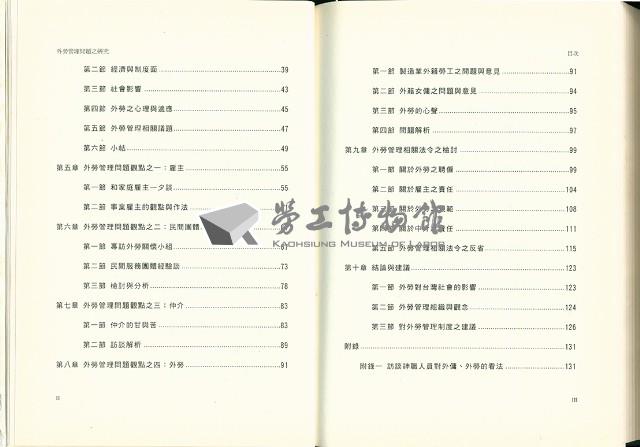 外勞管理問題之研究
第二節 經濟與制度面 39
第三節 社會影響 43
第四節 外勞之心理與適應 45
第五節 外勞管理相關議題 47
第六節 小結 49
第五章 外勞管理問題觀點之一：雇主 55
第一節 和家庭雇主一夕談 55
第二節 事業雇主的觀點與作法
第六章 外勞管理問題觀點之二：民間團體
第一節 專訪外勞關懷小組 61
第二節 民間服務團體經驗談 73
第三節 檢討與分析 78
第七章 外勞管理問題觀點之三：仲介 83
第一節 仲介的甘與苦 83
第二節 訪談解析 89
第八章 外勞管理問題觀點之四：外勞 91
II
目次
第一節 製造業外籍勞工之問題與意見 91
第二節 外籍女傭之問題與意見 94
第三節 外勞的心聲 95
第四節 問題解析 99
第九章 外勞管理相關法令之檢討 99
第一節 關於外勞之聘僱 99
第二節 關於雇主之責任 104
第三節 關於外勞 範 108
第四節 關於中介 責任 111
第五節 外勞管理相關法令之反省 115
第十章 結論與建議 123
第一節 外勞對台灣社會的影響 123
第二節 外勞管理組織與觀念 124
第三節 對外勞管理制度之建議 126
附錄 131
附錄一 訪談神職人員對外傭、外勞的看法 131
III
勞工博物館
KAOHSIUNG MUSEUM OF LABOR